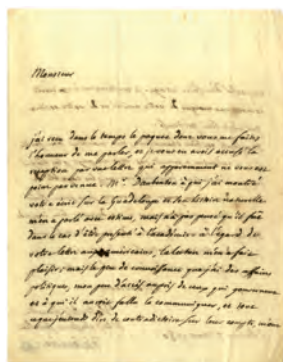 Monsieur
j'ai reçu dans le temps le paquet dont vous me faites
l'honneur de me parler, et je vous en avois accusé la
reception par une lettre qui apparemment ne vous est
point parvenue. Mr. Daubenton à qui j'ai montré
votre écrit sur la Guadeloupe et son histoire naturelle
m'en a parlé avec estime, mais n'a pas pensé qu'il fut
dans le cas d'être présenté à l'académie. à l'égard de
votre lettre aux américains, la lecture m'en a fait
plaisir; mais le peu de connoissance que j'ai des affaires
politiques, mon peu d'accès auprès de ceux qui gouvernent
et à qui il auroit fallu le communiquer, et tout
ce que j'entends dire de contradictoire sur leur compte, m'ont